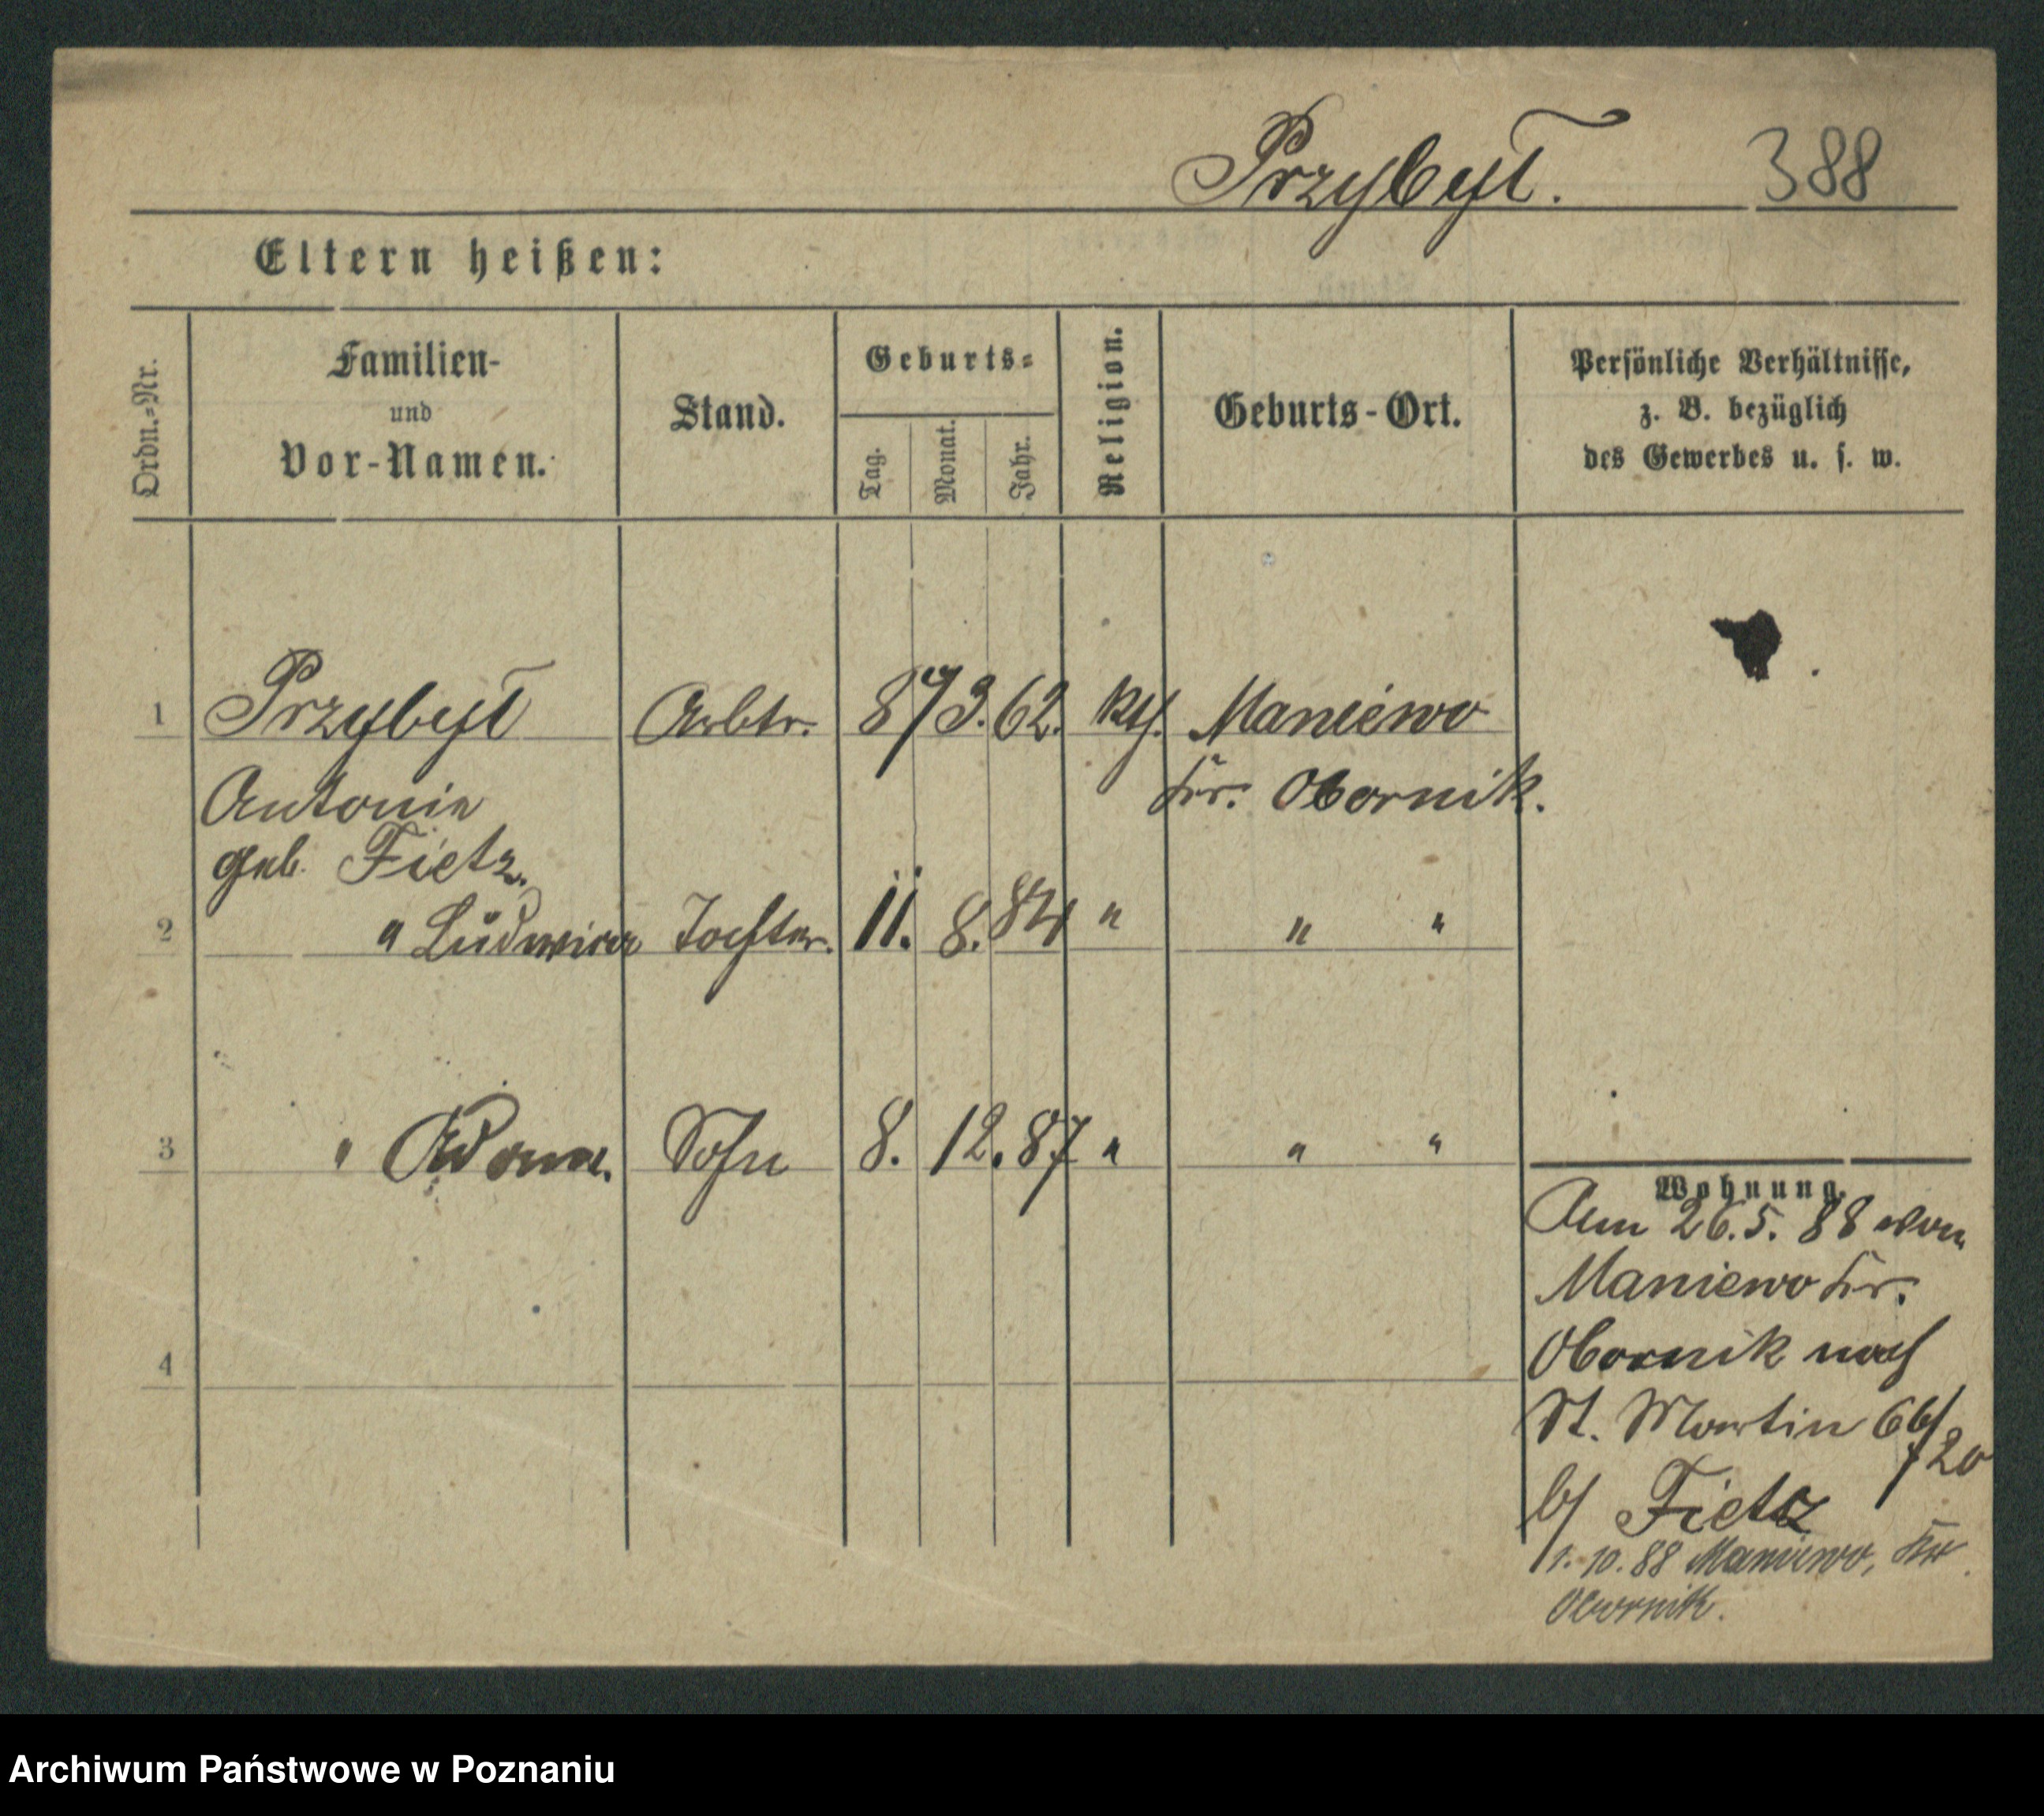 Przybył. 388
Eltern heißen:
Ordn.-Nr.
Familien-
und
Vor-Namen.
Stand.
Geburts-
Tag.
Monat.
Jahr.
Religion.
Geburts-Ort.
Persönliche Verhältnisse,
z. B. bezüglich
des Gewerbes u. s. w.
1 Przybył Arbtr. 8/3.62. kth. Maniewo
Antonie Kr. Obornik.
geb. Fietz.
2 " Ludwica Tochter. 11. 8. 84 " " "
3 " Adam. Sohn 8. 12. 87 " " "
4
Wohnung.
Am 26.5.88 von
Maniewo Kr.
Obornik nach
St. Martin 66/20
b/ Fietz
1.10.88 Maniewo, Kr.
Obornik.
Archiwum Państwowe w Poznaniu